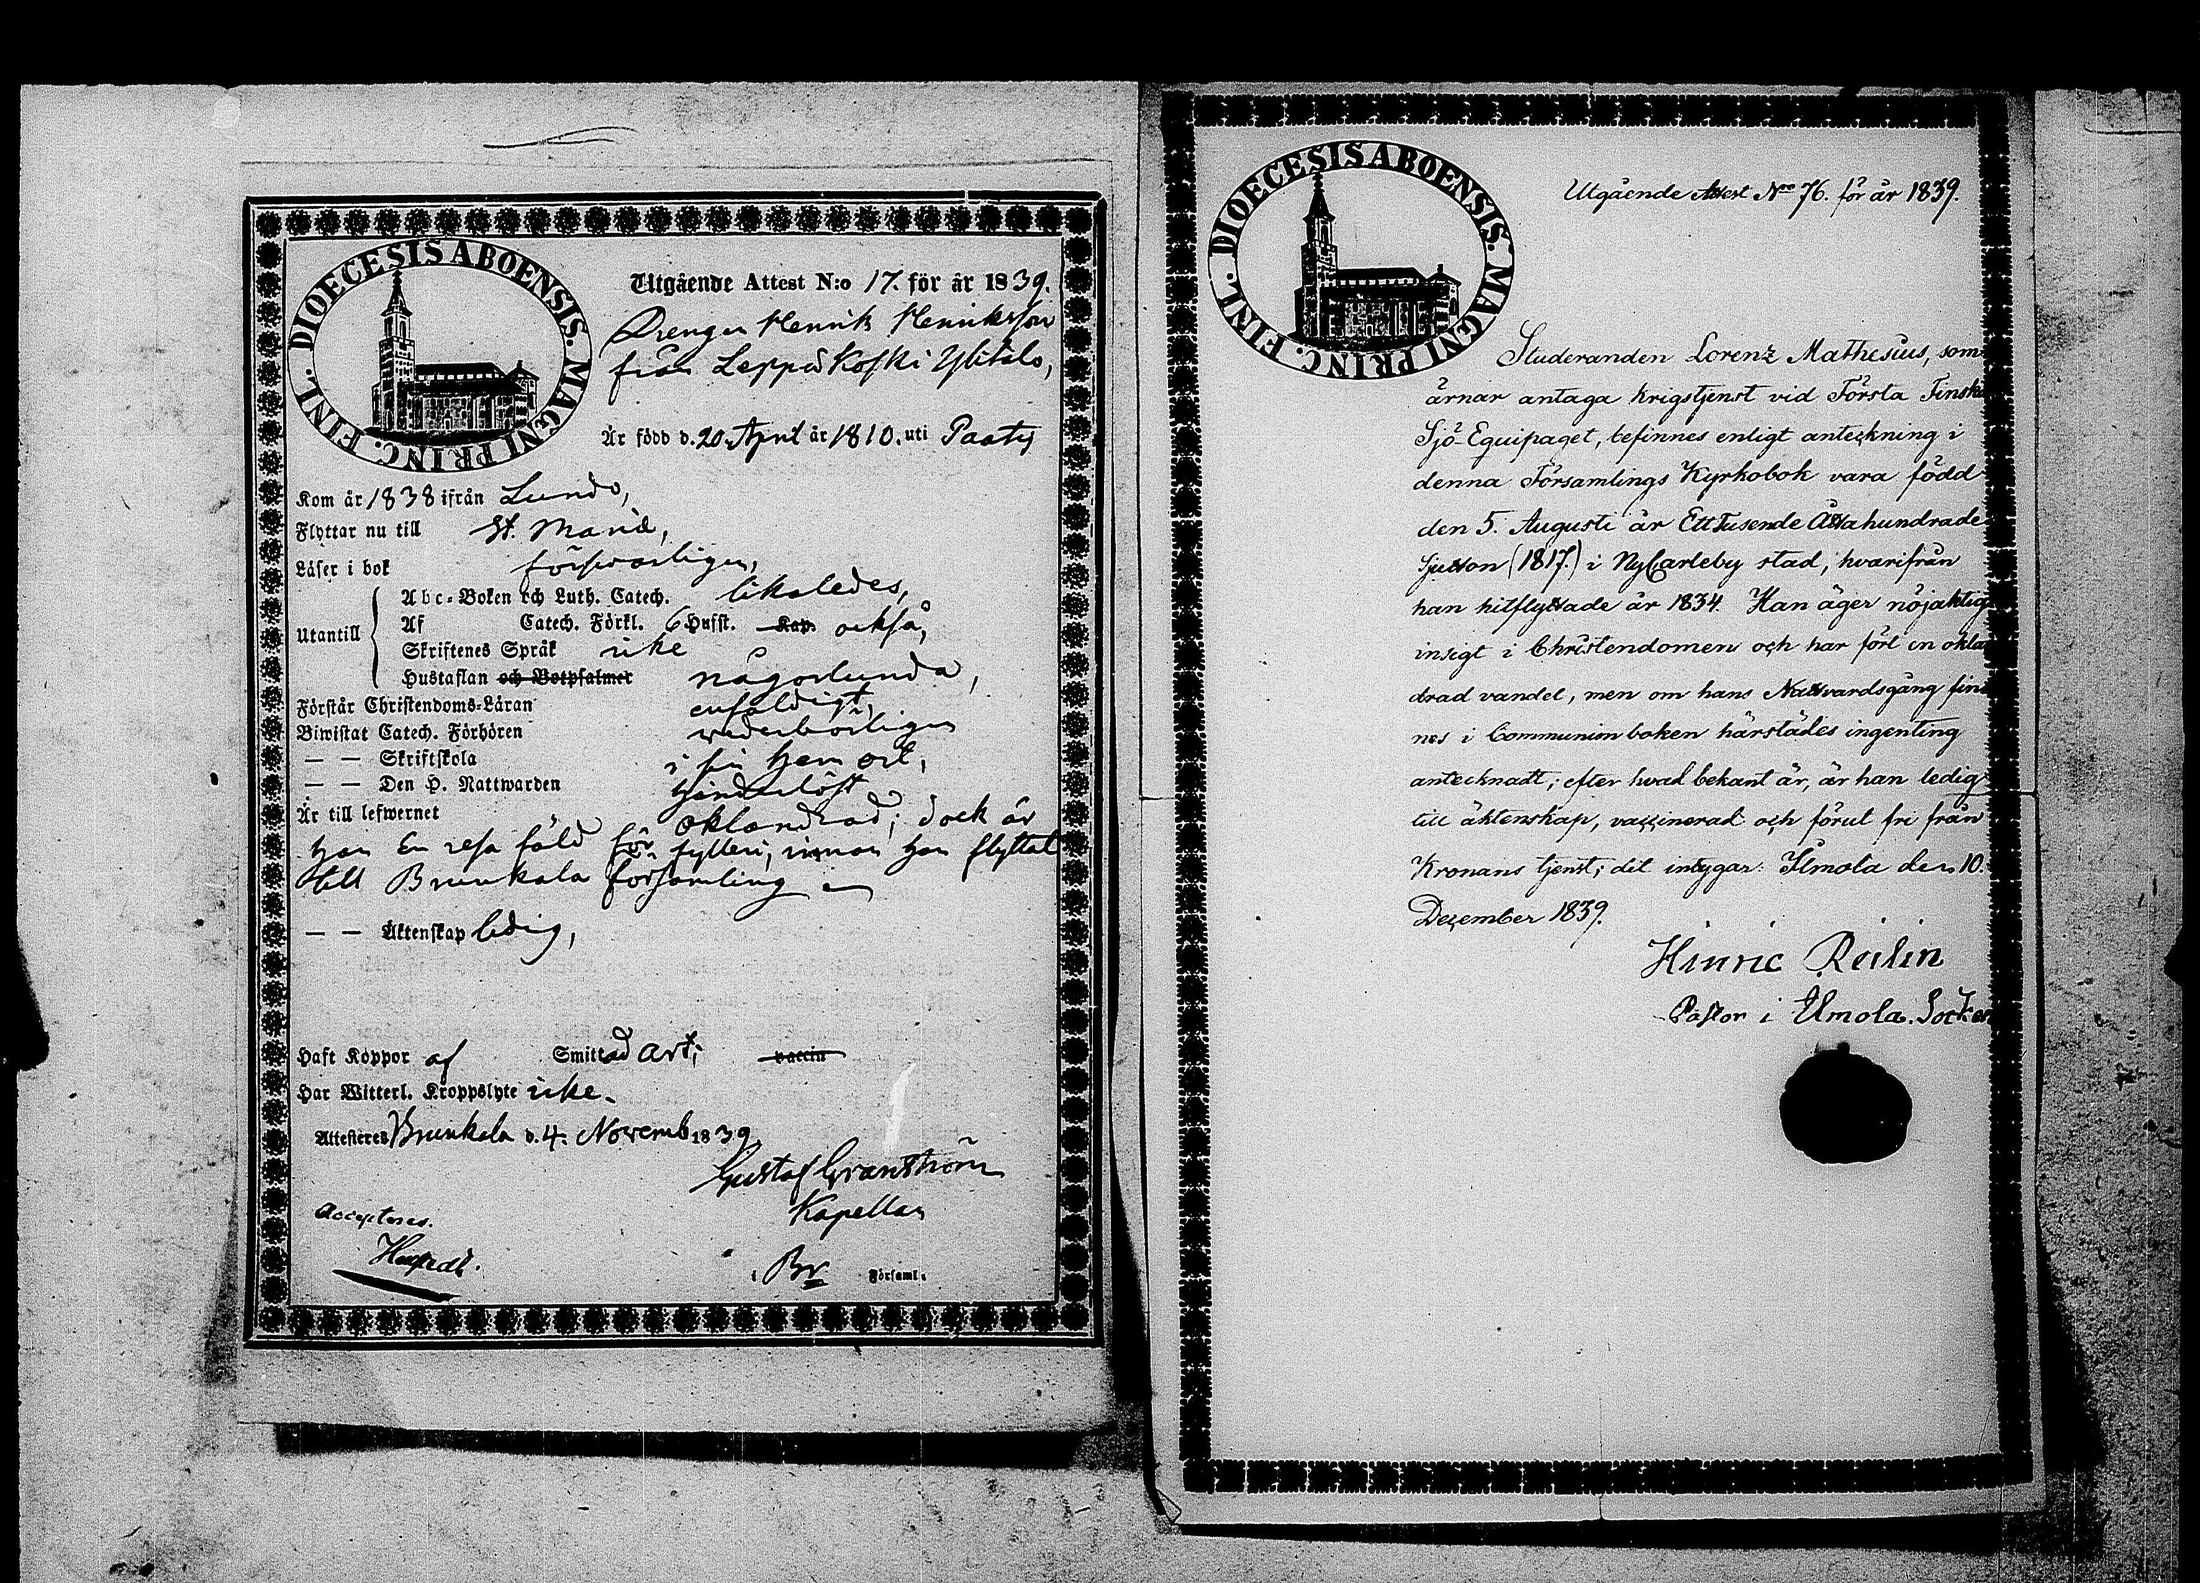 DIOECESIS ABOENSIS. MAGNI PRINC. FINL.
Utgående Attest N:o 17. för år 1839.
Drengen Henrik Henriksson
från Leppäkoski Ylitalo,
Är född d. 20 April år 1810. uti Paatis
Kom år 1838 ifrån Lundo,
Flyttar nu till St. Mariæ,
Läser i bok försvarligen,
Utantill
Abc-Boken och Luth. Catech. likaledes,
Af Catech. Förkl. 6 Hufst. Kap. också,
Skriftenes Språk icke
Hustaflan och Botpsalmer någorlunda,
Förstår Christendoms-Läran enfaldigt,
Biwistat Catech. Förhören vederbörligen
— — Skriftskola i sin hem ort,
— — Den H. Nattwarden hinderlöst
Är till lefwernet oklandrad; dock är
han En resa fäld för fylleri, innan han flyttat
till Brunkala församling
— — Äktenskap ledig,
Haft Koppor af Smittad art; vaccin
Har Witterl. Kroppslyte icke.
Attesteres Brunkala d. 4. Novemb 1839.
Gustaf Granström
Kapellan
Accepteres.
i Br Församl.
DIOECESIS ABOENSIS. MAGNI PRINC. FINL.
Utgående Attest Nro 76. för år 1839.
Studeranden Lorenz Mathesius, som
ärnar antaga krigstjenst vid Första Finska
Sjö-Equipaget, befinnes enligt anteckning i
denna Församlings Kyrkobok vara född
den 5. Augusti år Ett Tusende Åttahundrade
Sjutton (1817.) i NyCarleby stad, hvarifrån
han hitflyttade år 1834. Han äger nöjaktig
insigt i Christendomen och har fört en oklan
drad vandel, men om hans Nattvardsgång fin
nes i Communion boken härstädes ingenting
antecknadt; efter hvad bekant är, är han ledig
till äktenskap, vaccinerad och förut fri från
Kronans tjenst; det intygar: Ilmola den 10.
December 1839.
Hinric Reilin
Pastor i Ilmola. Socken